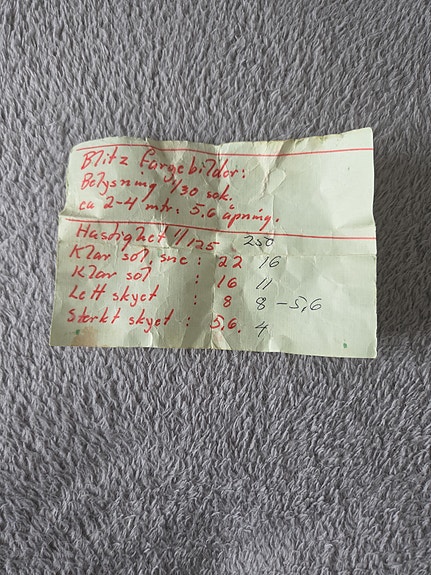 Blitz fargebilder:
Belysning 1/30 sek.
ca 2-4 mtr: 5,6 åpning.
Hastighet 1/125 250
Klar sol, sne : 22 16
Klar sol : 16 11
Lett skyet : 8 8-5,6
Sterkt skyet : 5,6. 4